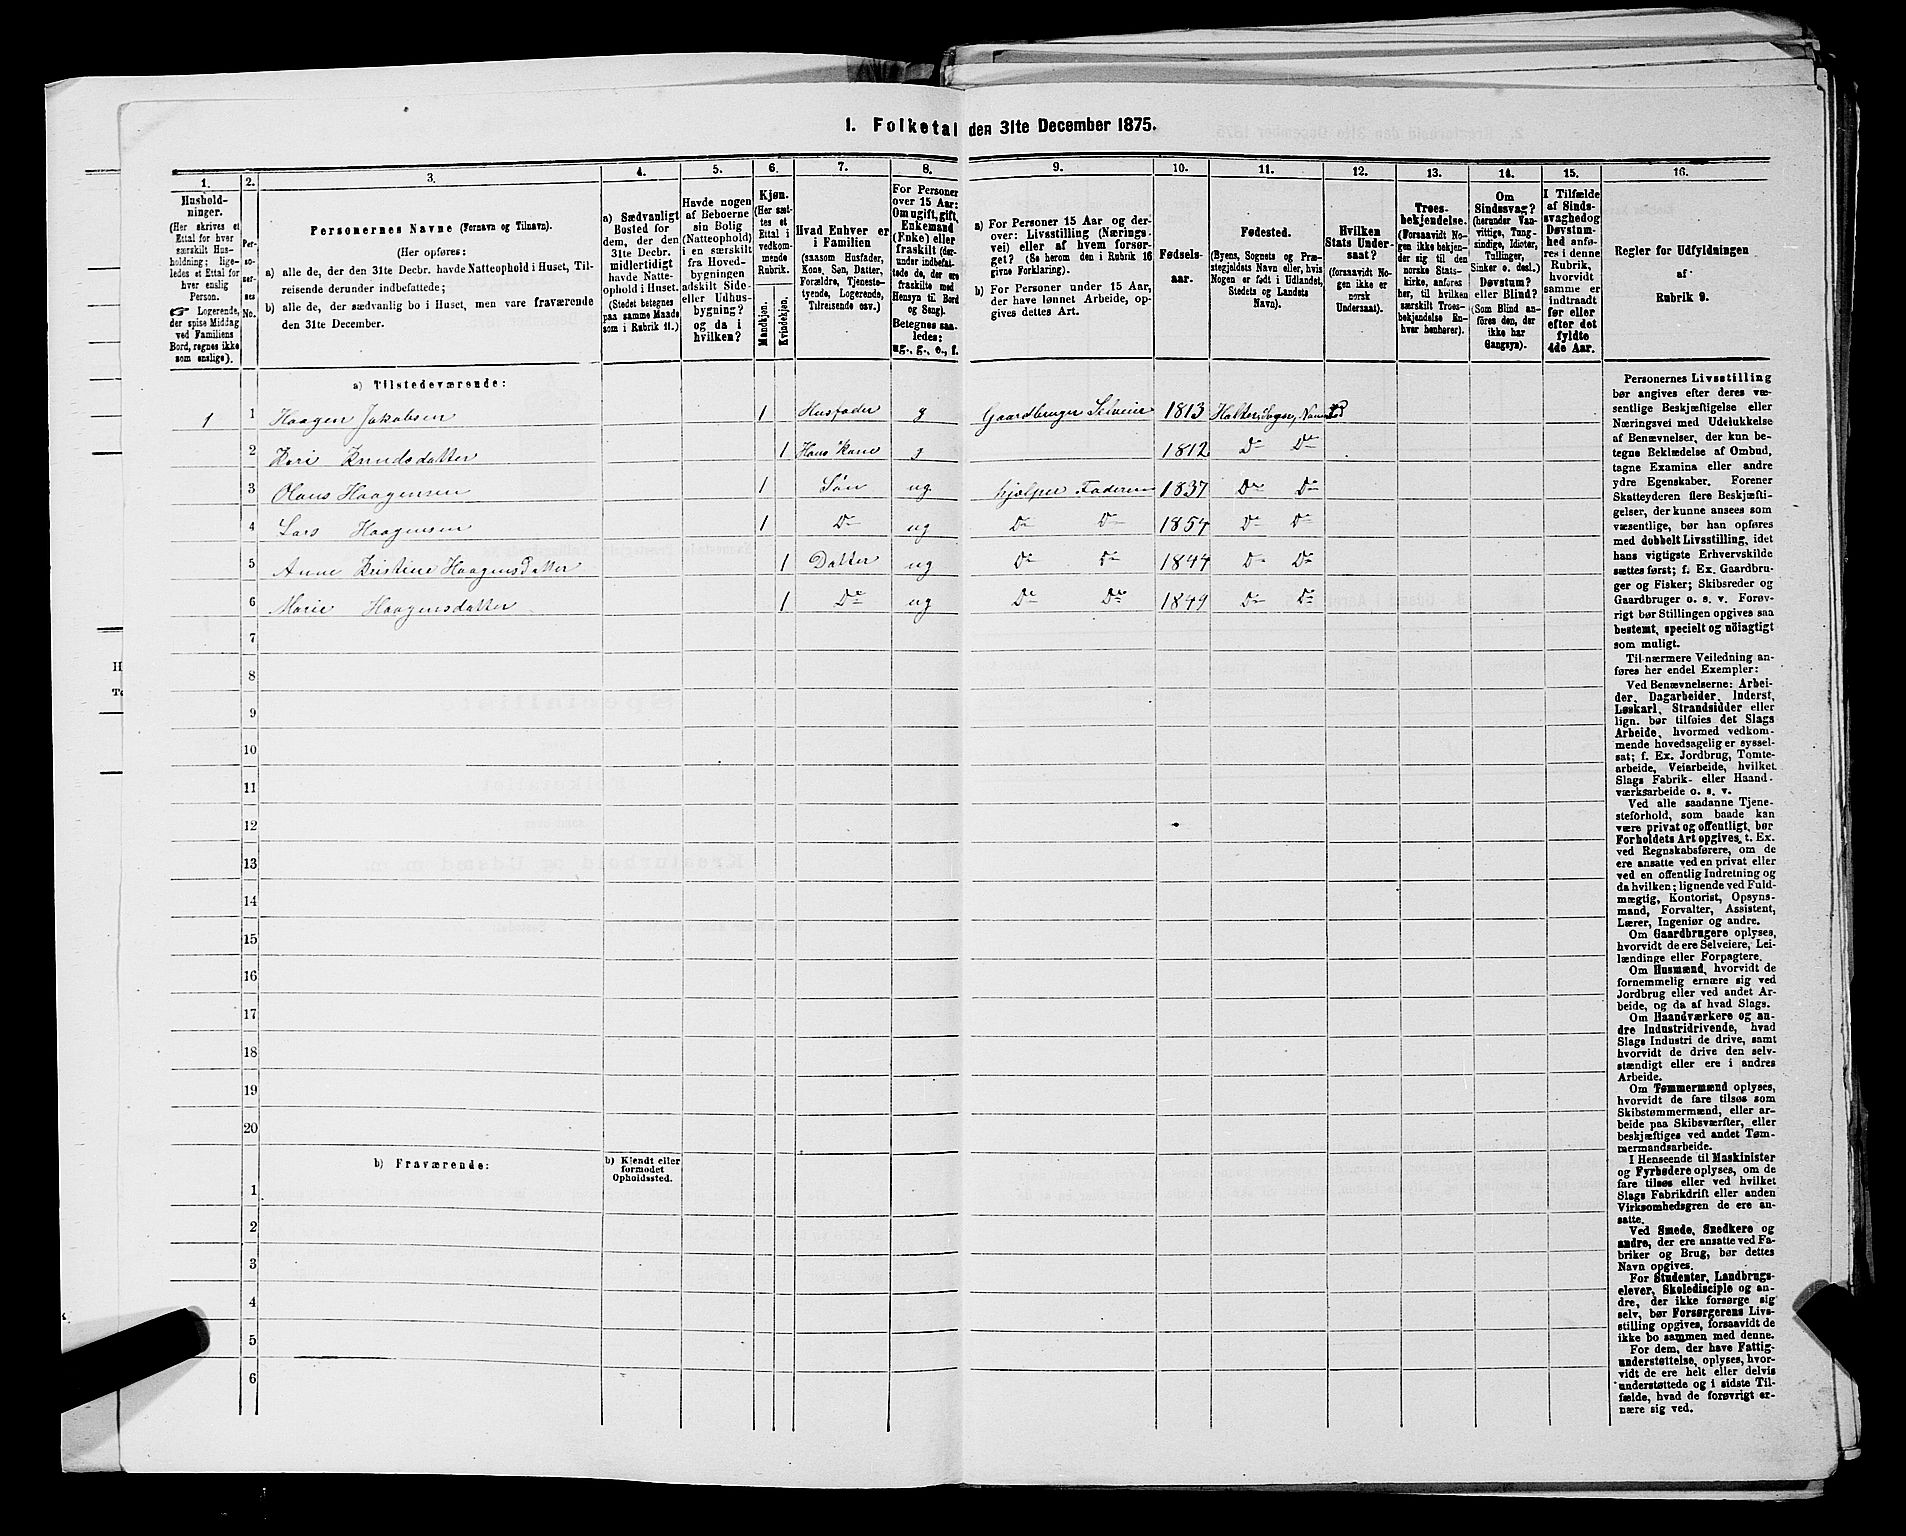 1. Folketal den 31te December 1875.
1.
2.
3.
4.
5.
6.
7.
8.
9.
10.
11.
12.
13.
14.
15.
16.
Hushold-
ninger.
(Her skrives et
Ettal for hver
særskilt Hus-
holdning; lige-
ledes et Ettal for
hver enslig
Person.
☛ Logerende,
der spise Middag
ved Familiens
Bord, regnes ikke
som enslige).
Per-
so-
ner-
nes
No.
Personernes Navne (Fornavn og Tilnavn).
(Her opføres:
a) alle de, der den 31te Decbr. havde Natteophold i Huset, Til-
reisende derunder indbefattede;
b) alle de, der sædvanlig bo i Huset, men vare fraværende
den 31te December.
a) Sædvanligt
Bosted for
dem, der den
31te Decbr.
midlertidigt
havde Natte-
ophold i Huset.
(Stedet betegnes
paa samme Maade
som i Rubrik 11.)
Havde nogen
af Beboerne
sin Bolig
(Natteophold)
i en særskilt
fra Hoved-
bygningen
adskilt Side-
eller Udhus-
bygning?
og da i
hvilken?
Kjøn.
(Her sæt-
tes et
Ettal i
vedkom-
mende
Rubrik.
Mandkjøn.
Kvindekjøn.
Hvad Enhver er
i Familien
(saasom Husfader,
Kone, Søn, Datter,
Forældre, Tjeneste-
tyende, Logerende,
Tilreisende osv.)
For Personer
over 15 Aar:
Om ugift, gift,
Enkemand
(Enke) eller
fraskilt (der-
under indbefat-
tede de, der ere
fraskilte med
Hensyn til Bord
og Seng).
Betegnes saa-
ledes:
ug., g., e., f.
a) For Personer 15 Aar og der-
over: Livsstilling (Nærings-
vei) eller af hvem forsør-
get? (Se herom den i Rubrik 16
givne Forklaring).
b) For Personer under 15 Aar,
der have lønnet Arbeide, op-
gives dettes Art.
Fødsels-
aar.
Fødested.
(Byens, Sognets og Præ-
stegjeldets Navn eller, hvis
Nogen er født i Udlandet,
Stedets og Landets
Navn).
Hvilken
Stats Under-
saat?
(forsaavidt No-
gen ikke er
norsk
Undersaat).
Troes-
bekjendelse.
(Forsaavidt No-
gen ikke bekjen-
der sig til den
norske Stats-
kirke, anføres
her, til hvilken
særskilt Troes-
bekjendelse En-
hver henhører).
Om
Sindssvag?
(herunder Van-
vittige, Tung-
sindige, Idioter,
Tullinger,
Sinker o. desl.)
Døvstum?
eller Blind?
(Som Blind an-
føres den, der
ikke har
Gangsyn).
I Tilfælde
af Sinds-
svaghed og
Døvstum-
hed anfø-
res i denne
Rubrik,
hvorvidt
samme er
indtraadt
før eller
efter det
fyldte
4de Aar.
Regler for Udfyldningen
af
Rubrik 9.
a) Tilstedeværende:
1 1 Haagen Jakobsen 1 Husfader g Gaardbruger Selveier 1813
2 Kari Knudsdatter 1 Hans Kone g 1812 Do Do
3 Olaus Haagensen 1 Søn ug hjælper Faderen 1837 Do Do
4 Lars Haagensen 1 Do ug Do Do 1854 Do Do
5 Anne Kristine Haagensdatter 1 Datter ug Do Do 1844 Do Do
6 Marie Haagensdatter 1 Do ug Do Do 1849 Do Do
7
8
9
10
11
12
13
14
15
16
17
18
19
20
b) Fraværende:
b) Kjendt eller
formodet
Opholdssted.
1
2
3
4
5
6
Personernes Livsstilling
bør angives efter deres væ-
sentlige Beskjæftigelse eller
Næringsvei med Udelukkelse
af Benævnelser, der kun be-
tegne Beklædelse af Ombud,
tagne Examina eller andre
ydre Egenskaber. Forener
Skatteyderen flere Beskjæfti-
gelser, der kunne ansees som
væsentlige, bør han opføres
med dobbelt Livsstilling, idet
hans vigtigste Erhvervskilde
sættes først; f. Ex. Gaardbru-
ger og Fisker; Skibsreder og
Gaardbruger o. s. v. Forøv-
rigt bør Stillingen opgives saa
bestemt, specielt og nöiagtigt
som muligt.
Til nærmere Veiledning an-
føres her endel Exempler:
Ved Benævnelserne: Arbei-
der, Dagarbeider, Inderst,
Løskarl, Strandsidder eller
lign. bør tilføies det Slags
Arbeide, hvormed vedkom-
mende hovedsagelig er syssel-
sat; f. Ex. Jordbrug, Tomte-
arbeide, Veiarbeide, hvilket
Slags Fabrik- eller Haand-
værksarbeide o. s. v.
Ved alle saadanne Tjene-
steforhold, som baade kan
være privat og offentligt, bør
Forholdets Art opgives, t. Ex.
ved Regnskabsførere, om de
ere ansatte ved en privat eller
ved en offentlig Indretning og
da hvilken; lignende ved Fuld-
mægtig, Kontorist, Opsyns-
mand, Forvalter, Assistent,
Lærer, Ingeniør og andre.
Om Gaardbrugere oplyses,
hvorvidt de ere Selveiere, Lei-
lændinge eller Forpagtere.
Om Husmænd, hvorvidt de
fornemmelig ernære sig ved
Jordbrug eller ved andet Ar-
beide, og da af hvad Slags.
Om Haandværkere og an-
dre Industridrivende, hvad
Slags Industri de drive, samt
hvorvidt de drive den selv-
stændigt eller ere i andres
Arbeide.
Om Tømmermænd oplyses,
hvorvidt de fare tilsøs som
Skibstømmermænd, eller ar-
beide paa Skibsværfter, eller
beskjæftiges ved andet Tøm-
mermandsarbeide.
I Henseende til Maskinister
og Fyrbødere oplyses, om de
fare tilsøs eller ved hvilket
Slags Fabrikdrift eller anden
Virksomhedsgren de ere an-
satte.
Ved Smede, Snedkere og
andre, der ere ansatte ved Fa-
briker og Brug, bør dettes
Navn opgives.
For Studenter, Landbrugs-
elever, Skoledisciple og an-
dre, der ikke forsørge sig
selv, bør Forsørgerens Livs-
stilling opgives, forsaavidt de
ikke bo sammen med denne.
For dem, der have Fattig-
understøttelse, oplyses, hvor-
vidt de ere helt eller delvis
understøttede og i sidste Til-
fælde, hvad de forøvrigt er-
nære sig ved.